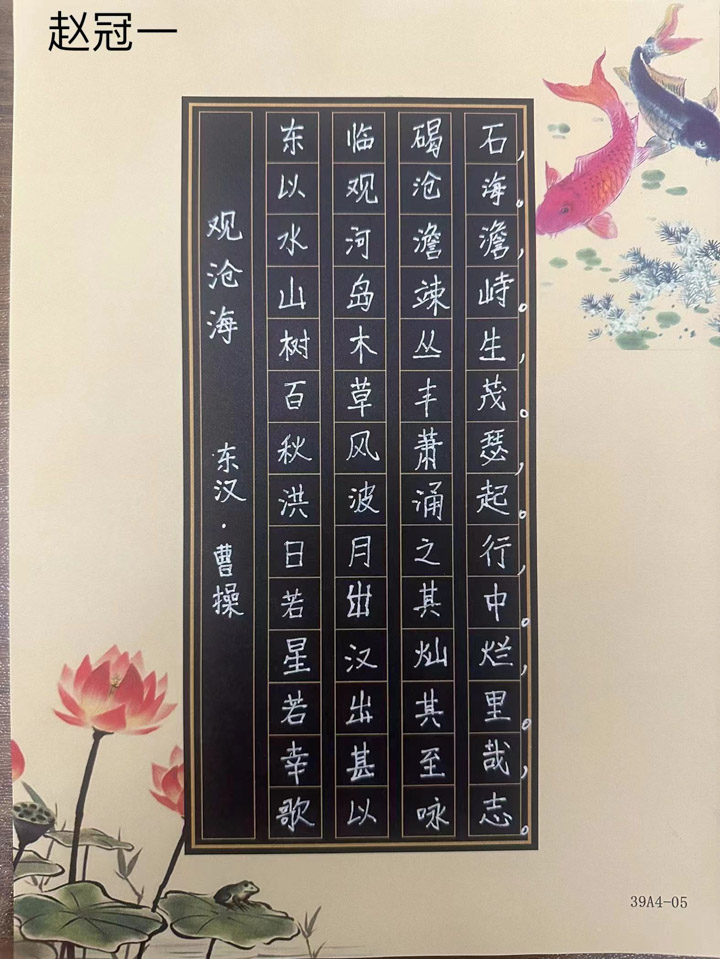 赵冠一
观沧海
东汉·曹操
东临碣石,
以观沧海。
水河澹澹,
山岛竦峙。
树木丛生,
百草丰茂。
秋风萧瑟,
洪波涌起。
日月之行,
若出其中。
星汉灿烂,
若出其里。
幸甚至哉,
歌以咏志。
39A4-05